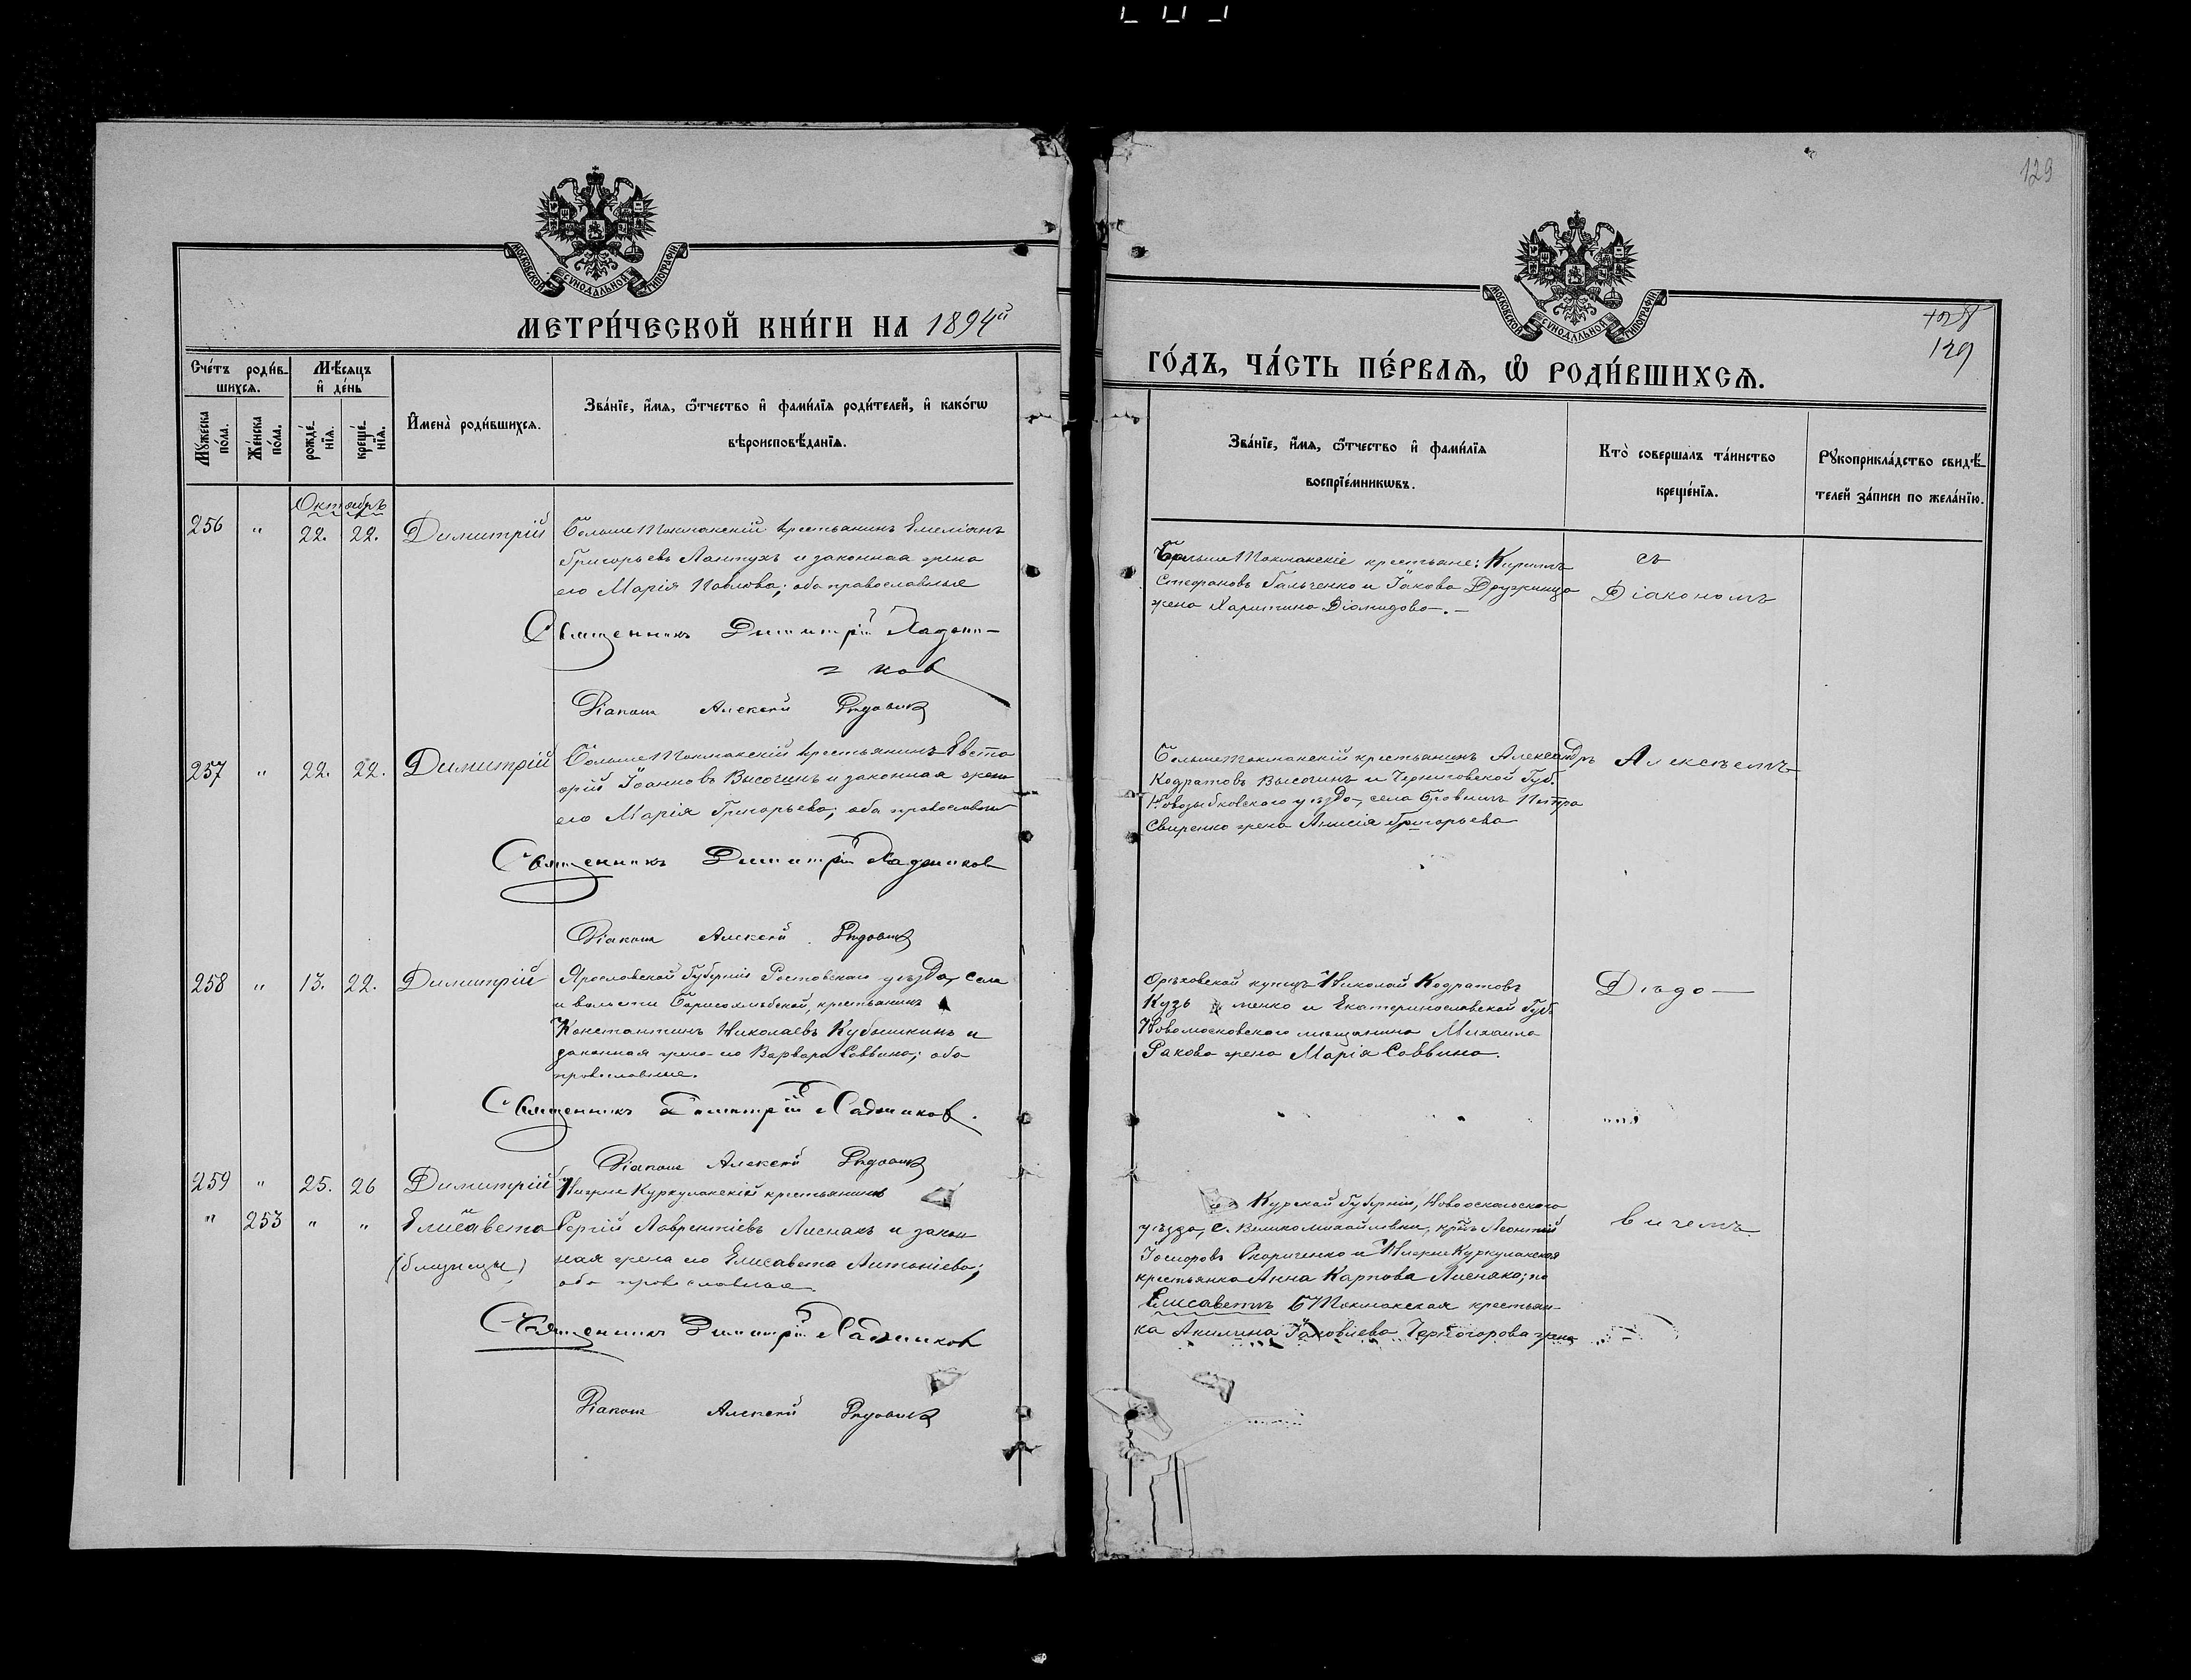 129
МОСКОВСКОЙ СѴНОДАЛЬНОЙ ТИПОГРАФІИ
МЕТРИ́ЧЕСКОЙ КНИ́ГИ НА 1894й
Сче́тъ роди́в-
шихсѧ.
Мѣ́сѧцъ
и҆ де́нь
Мꙋ́жеска по́ла.
Же́нска по́ла.
рожде́-
нїѧ.
креще́-
нїѧ.
И҆мена̀ роди́вшихсѧ.
Зва́нїе, и҆́мѧ, ѻ҆́тчество и҆ фами́лїѧ роди́телей, и҆ како́гѡ
вѣроисповѣ́данїѧ.
Октябрь
256 " 22. 22. Димитрій
БольшеТокмакскій крестьянинъ Емеліанъ
Григорьевъ Лаптухъ и законная жена
его Марія Павлова; оба православные
Священникъ Димитрій Ладжи-
нов
Діаконъ Алексѣй
257 " 22. 22. Димитрій
БольшеТокмакскій крестьянинъ Евста-
фій Іоанновъ Высочинъ и законная жена
его Марія Григорьева; оба православные
Священникъ Димитрій
Діаконъ Алексѣй
258 " 13. 22. Димитрій
Ярославской Губерніи Ростовскаго уѣзда, села
и волости Борисоглѣбской, крестьянинъ
Константинъ Николаевъ Кубышкинъ и
законная жена его Варвара Саввина; оба
православные.
Священникъ Димитрій
Діаконъ Алексѣй
259 " 25. 26 Димитрій
" 253 " " Елисавета
(близнецы)
НижнеКуркулакскій крестьянинъ
Сергій Лаврентіевъ Лиснякъ и закон
ная жена его Елисавета Антоніева;
оба православные
Священникъ Димитрій
Діаконъ Алексѣй
МОСКОВСКОЙ СѴНОДАЛЬНОЙ ТИПОГРАФІИ
128
129
ГО́ДЪ, ЧА́СТЬ ПЕ́РВАѦ, Ѡ҆ РОДИ́ВШИХСѦ.
Зва́нїе, и҆́мѧ, ѻ҆́тчество и҆ фами́лїѧ
воспрїе́мникѡвъ.
Кто̀ соверша́лъ та́инство
креще́нїѧ.
Рꙋкоприкла́дство свидѣ́-
телей за́писи по жела́нїю.
БольшеТокмакскіе крестьяне: Кириллъ
Стефановъ Гальченко и Іакова Дружинца
жена Харитина Діомидова.—
съ
Діакономъ
БольшеТокмакскій крестьянинъ Александръ
Кодратовъ Высочинъ и Черниговской Губ.
Новозыбковскаго уѣзда, села Петра
Свиренко жена Анисія Григорьева
Алексѣемъ
Орѣховской купецъ Николай Кодратовъ
Кузь менко и Екатеринославской Губ.
Новомосковскаго мѣщанина Михаила
Ракова жена Марія Саввина.
Рыдо—
Курской Губерніи, Новооскольскаго
уѣзда, с. Великомихайловки, крнъ Леонтій
и НижнеКуркулакская
крестьянка Анна Карпова Лисняко; по
Елисаветѣ БТокмакская крестьян-
ка Акилина Іаковлева Черногорова жена
вичемъ